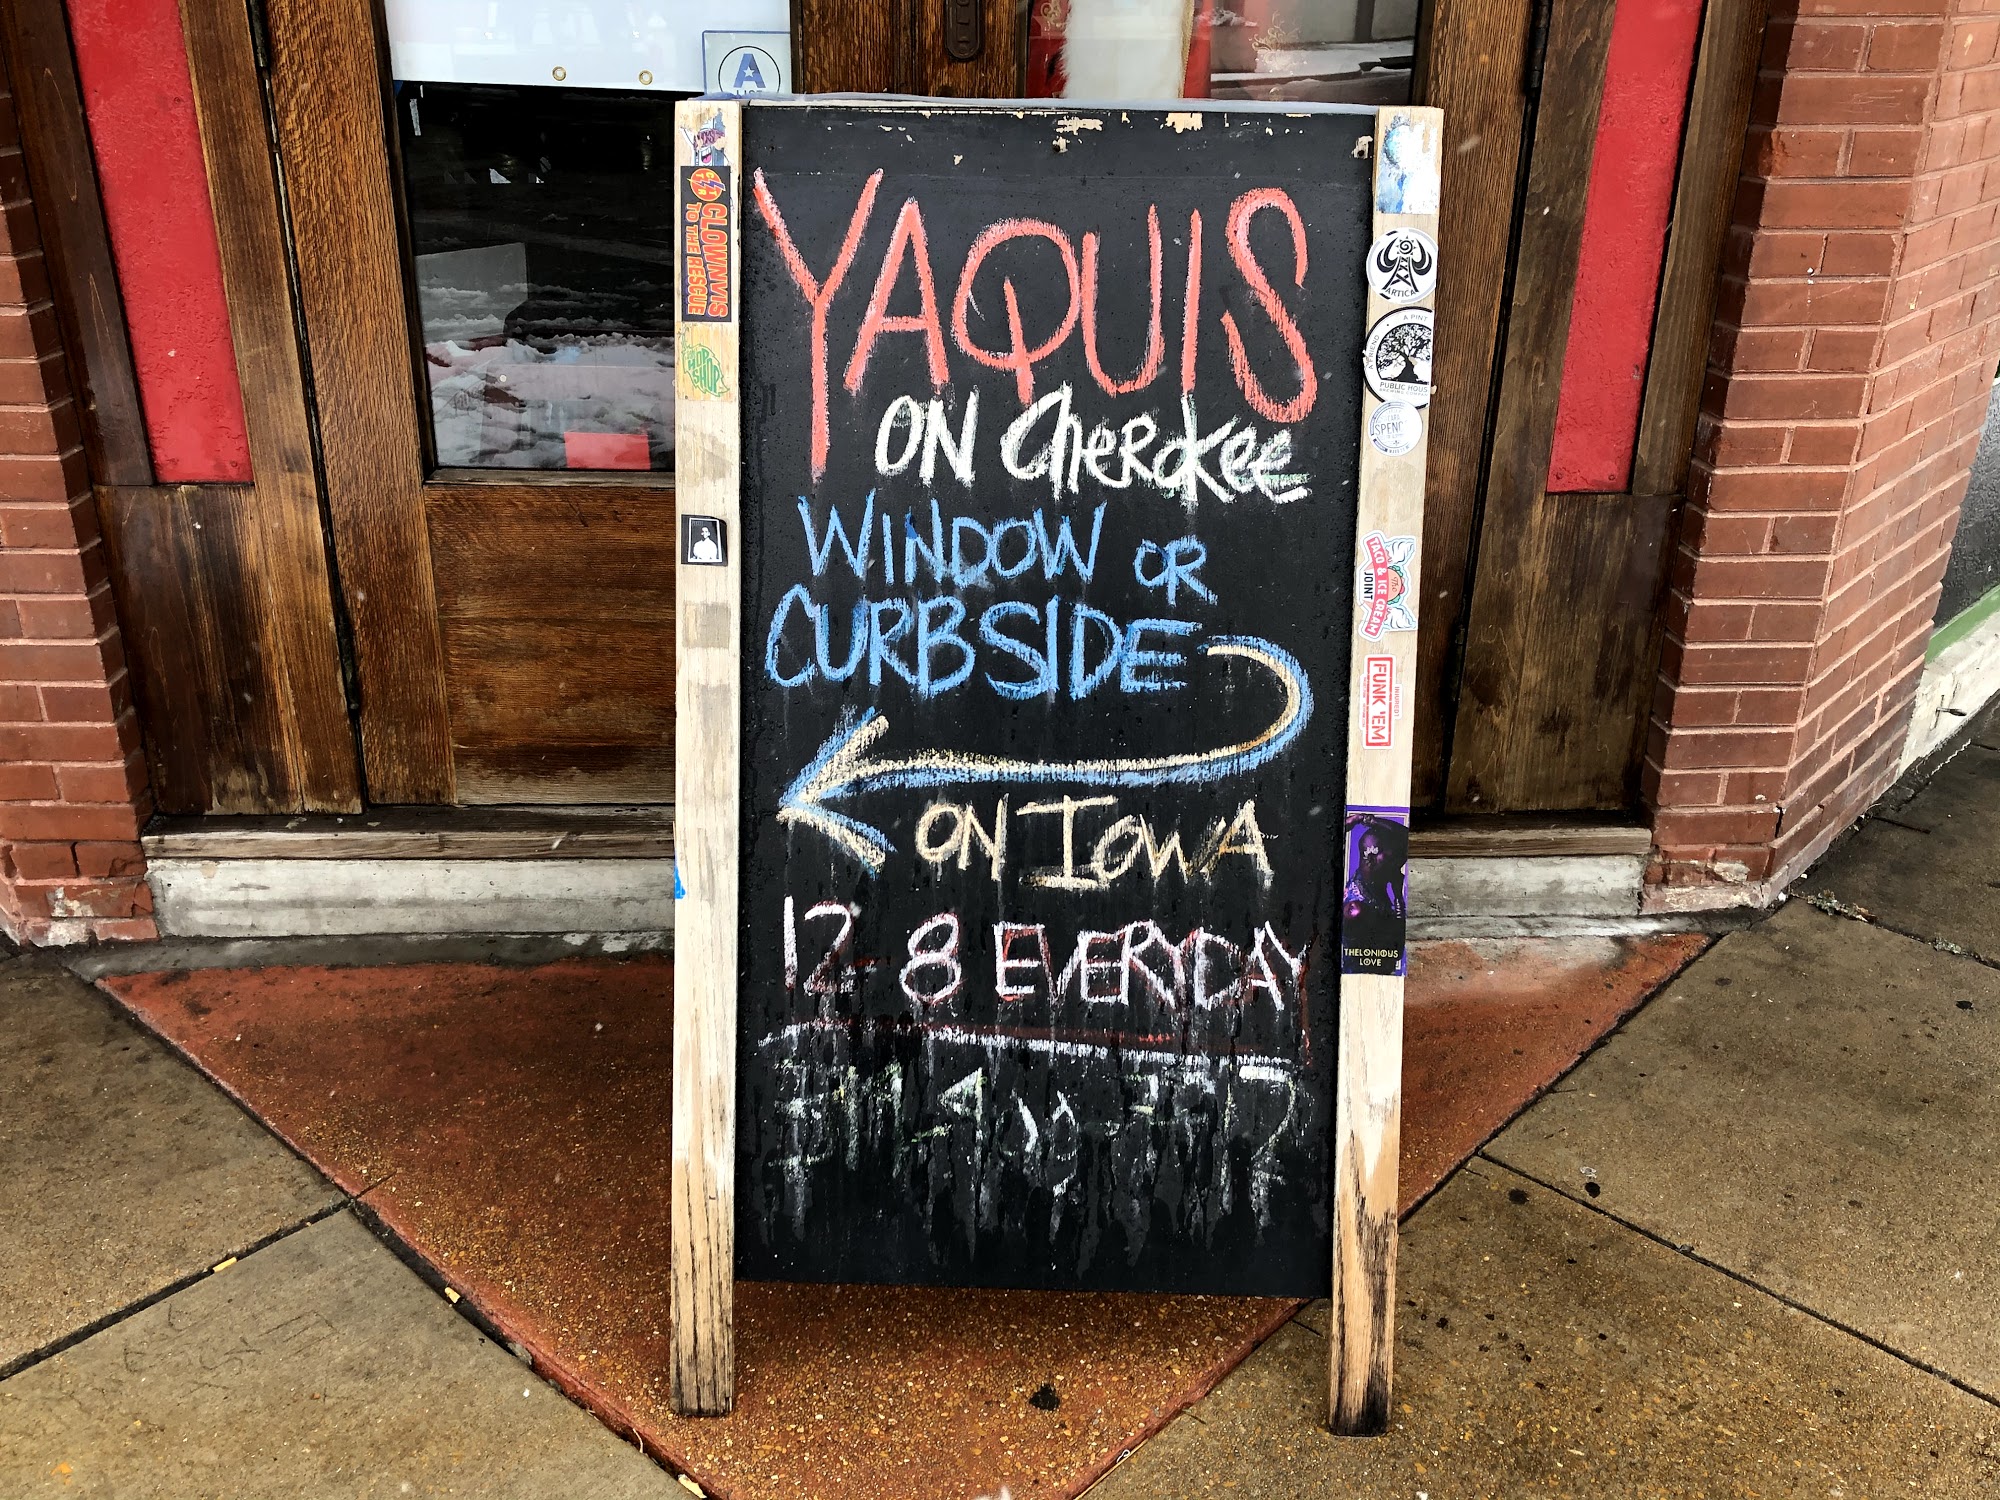 A
YAQUIS
ON Cherokee
WINDOW OR
CURBSIDE
ON IOWA
12-8 EVERYDAY
CLOWNVIS
TO THE RESCUE
ARTICA
A PINT
PUBLIC HOUSE
SPENC
TACO & ICE CREAM
JOINT
INJURED?
FUNK 'EM
THELONIOUS
LOVE